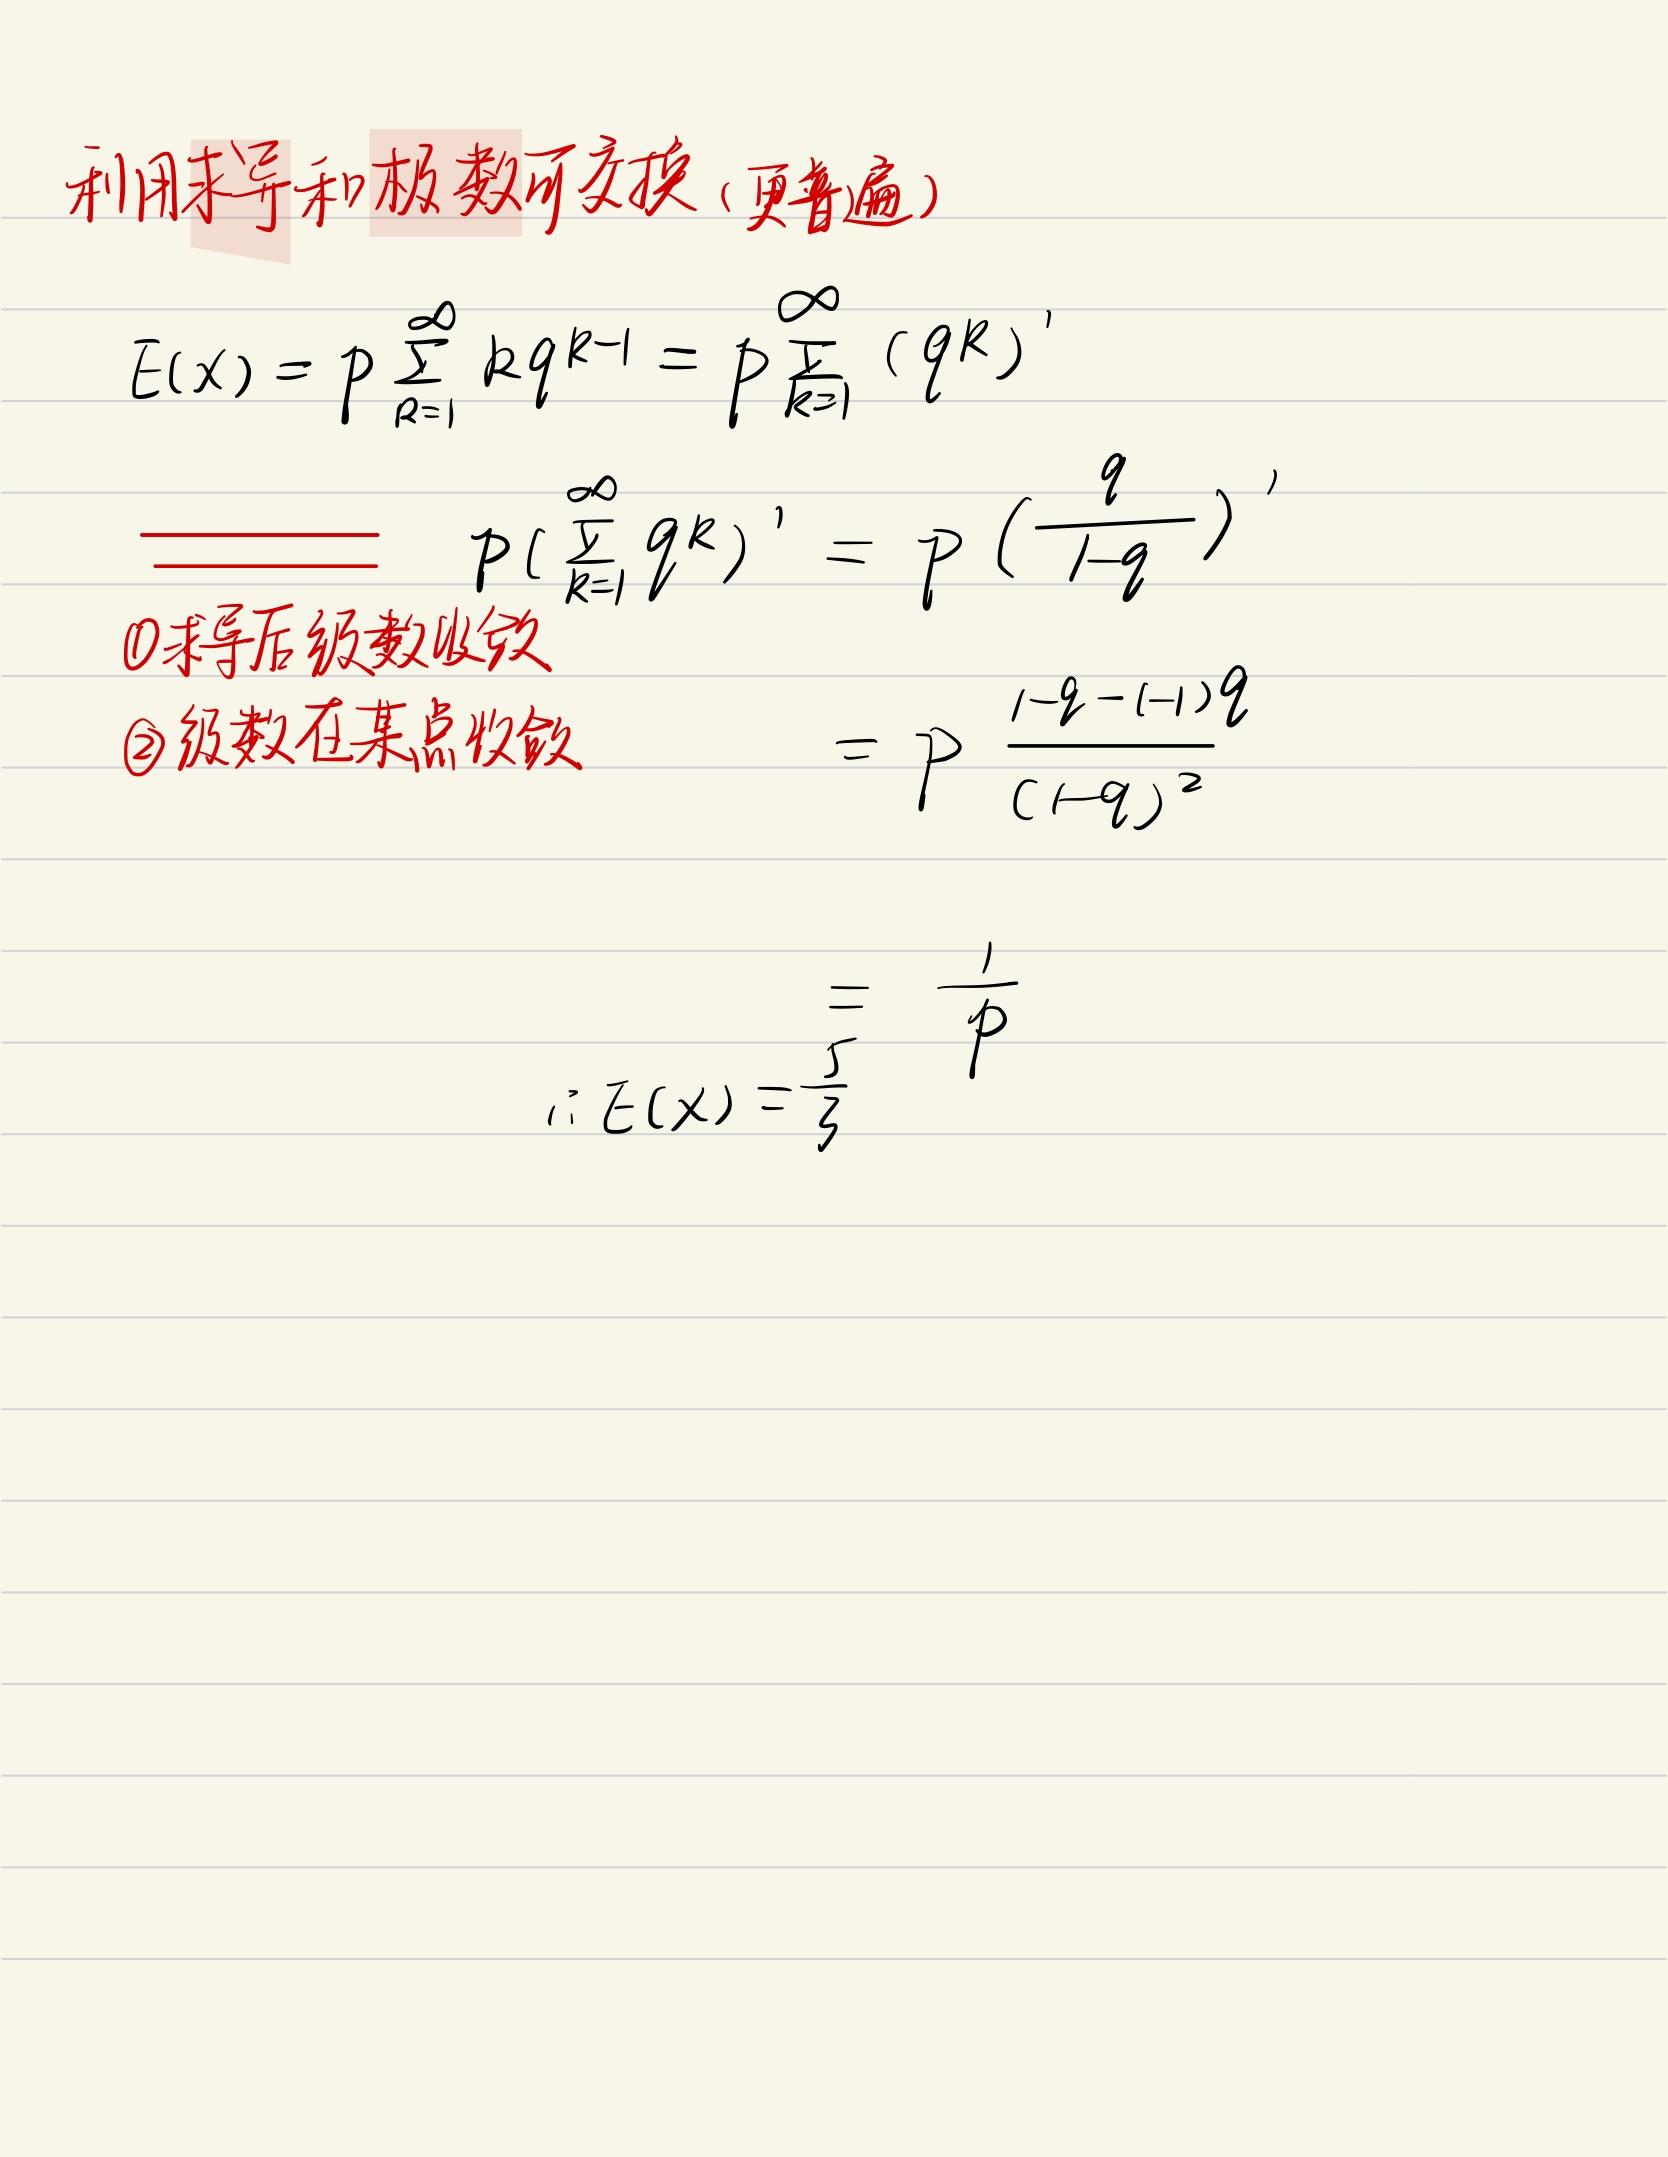 利用求导和极数可交换（更普遍）
E(X) = p ∑_{k=1}^{∞} k q^{k-1} = p ∑_{k=1}^{∞} (q^k)'
p(∑_{k=1}^{∞} q^k)' = p (q/(1-q))'
①求导后级数收敛
②级数在某点收敛
= p (1-q-(-1)q)/(1-q)^2
= 1/p
∴ E(X) = 5/3